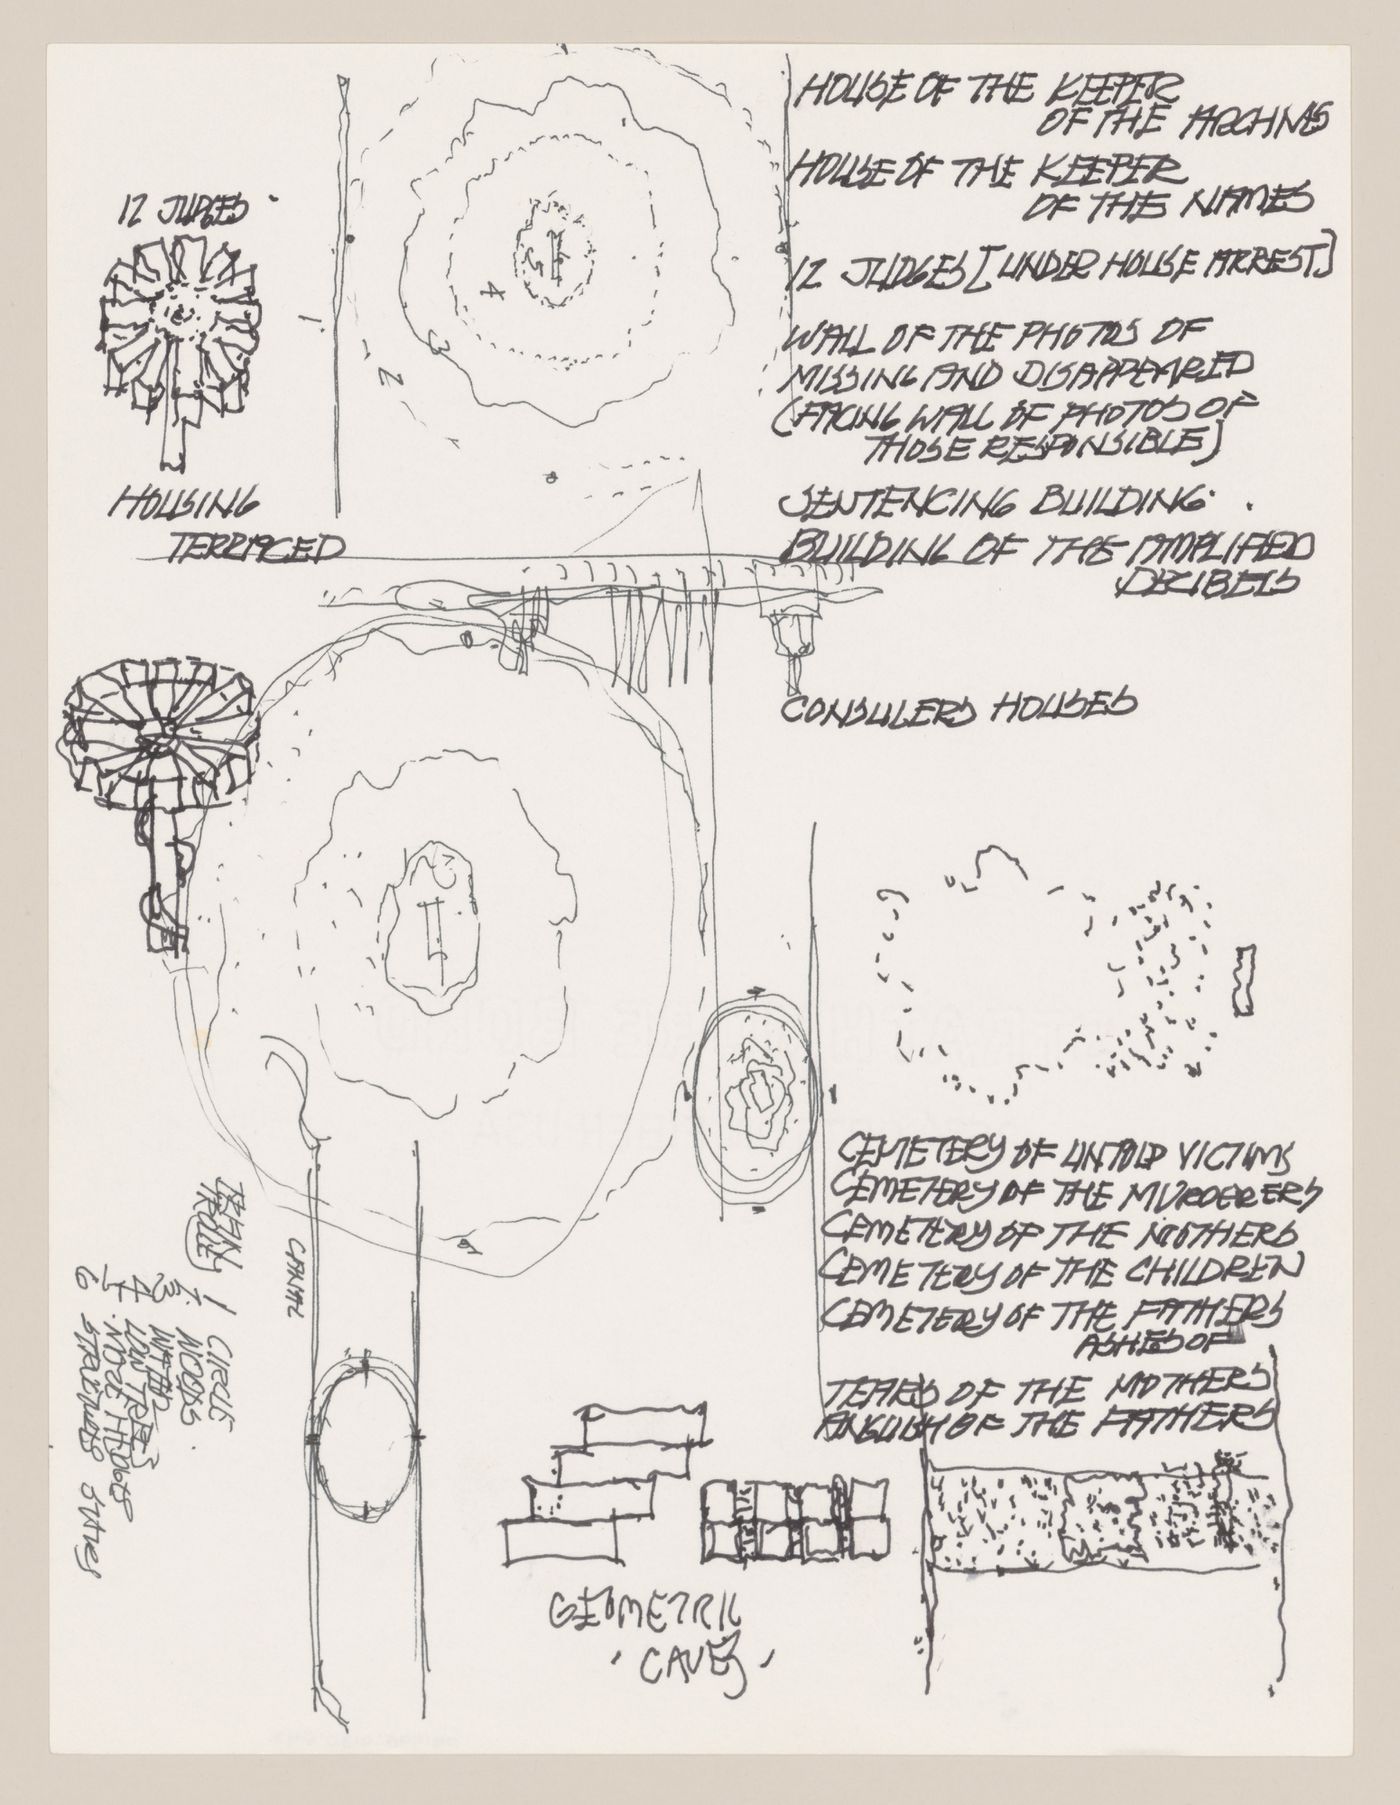 HOUSE OF THE KEEPER
OF THE ARCHIVES
HOUSE OF THE KEEPER
OF THE NAMES
12 JUDGES [UNDER HOUSE ARREST]
WALL OF THE PHOTOS OF
MISSING AND DISAPPEARED
(FACING WALL OF PHOTOS OF
THOSE RESPONSIBLE)
SENTENCING BUILDING.
BUILDING OF THE AMPLIFIED
DECIBELS
12 JUDGES
HOUSING
TERRACED
1
2
3
4
5
CONSULERS HOUSES
CEMETERY OF UNTOLD VICTIMS
CEMETERY OF THE MURDERERS
CEMETERY OF THE MOTHERS
CEMETERY OF THE CHILDREN
CEMETERY OF THE FATHERS
ASHES OF
TEARS OF THE MOTHERS
ANGUISH OF THE FATHERS
CANAL
1 CIRCLE
2 WOODS
3 WITH
4 LOW TREES
5
6
GEOMETRIC
CAVES